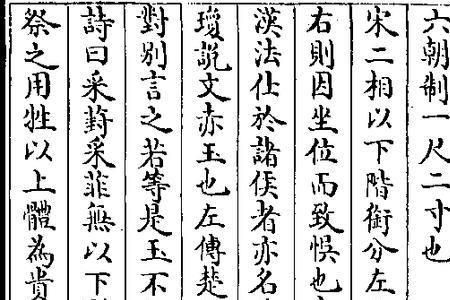 六朝制一尺二寸也
宋二相以下階銜分左
右則因坐位而致悞也
漢法仕於諸侯者亦名
瓊説文赤玉也左傳楚
對别言之若等是玉不
詩曰采葑采菲無以下
祭之用牲以上體為貴